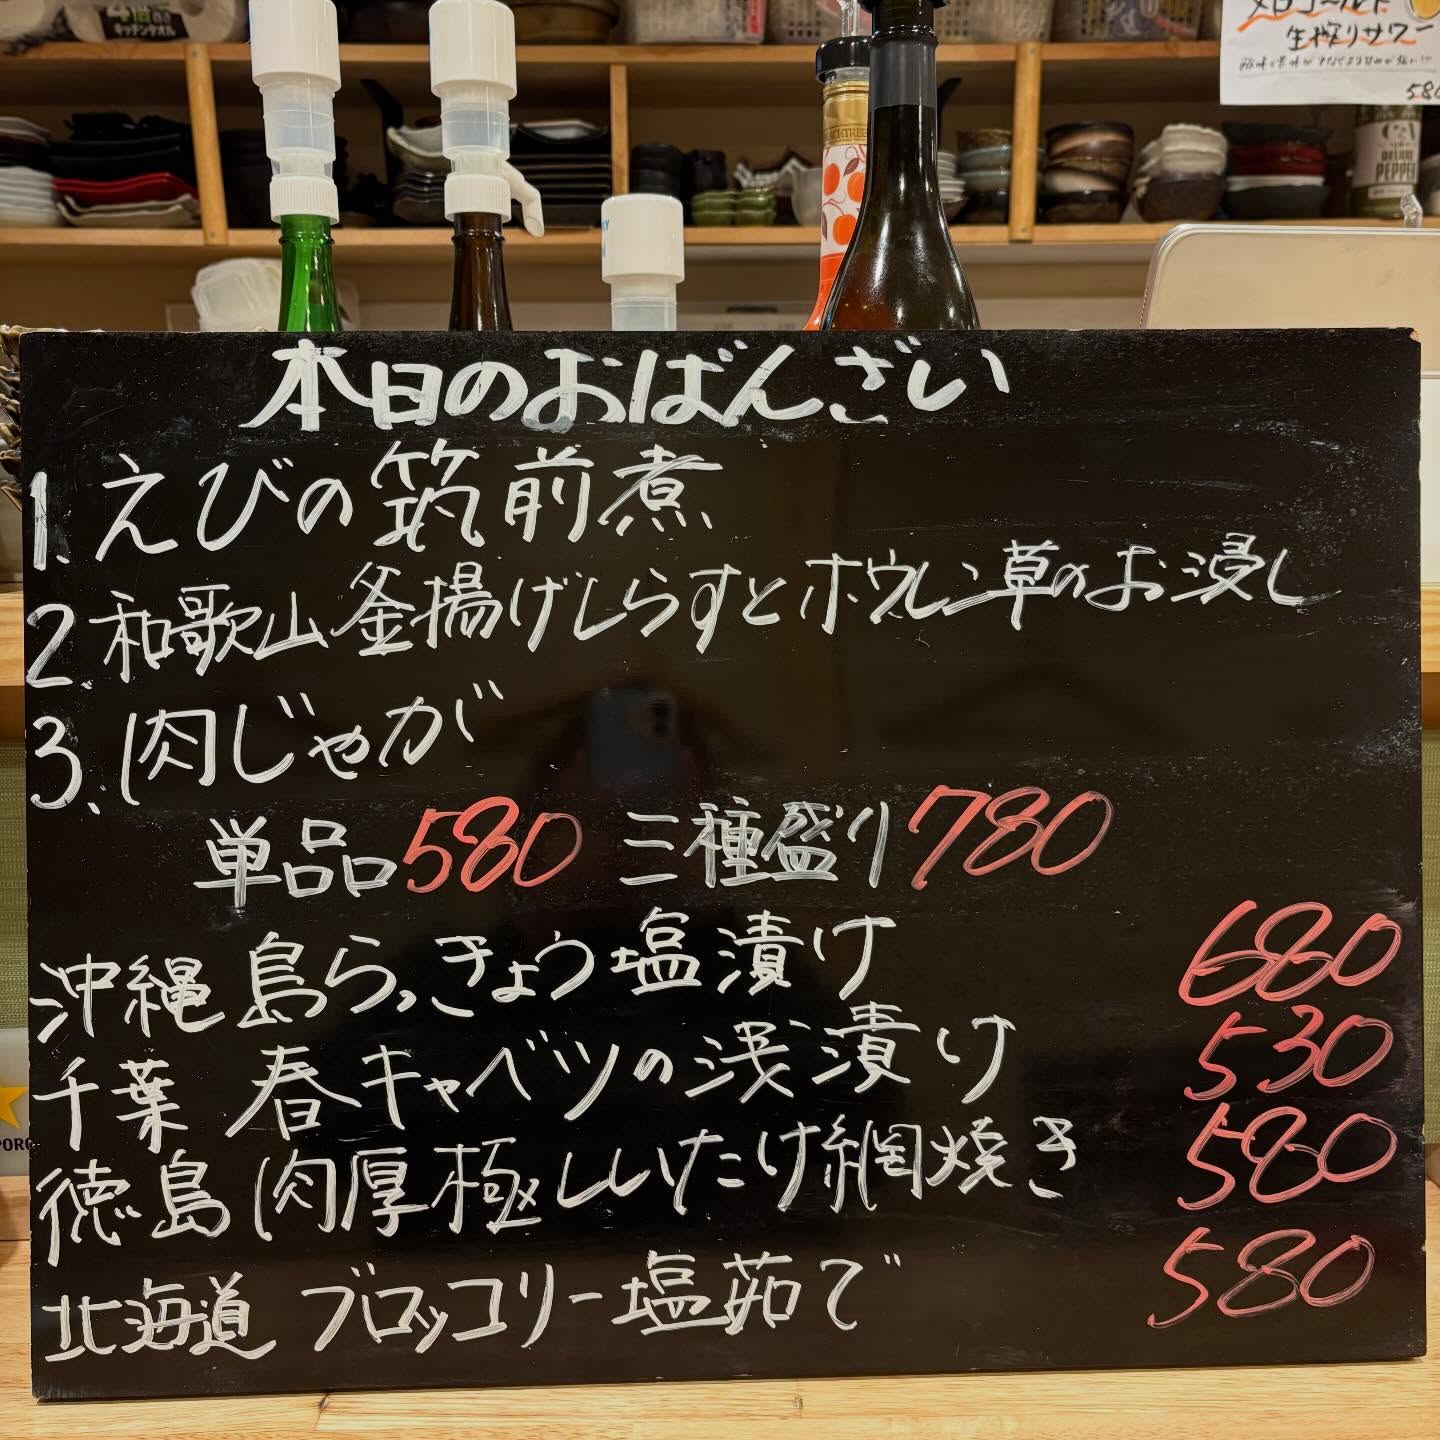 キッチンタオル
メロゴールド
生搾りサワー
580
PEPPER
本日のおばんざい
1. えびの筑前煮
2. 和歌山釜揚げしらすとホウレン草のお浸し
3. 肉じゃが
単品580 三種盛り780
沖縄 島らっきょう塩漬け 680
千葉 春キャベツの浅漬け 530
徳島 肉厚極しいたけ網焼き 580
北海道 ブロッコリー塩茹で 580